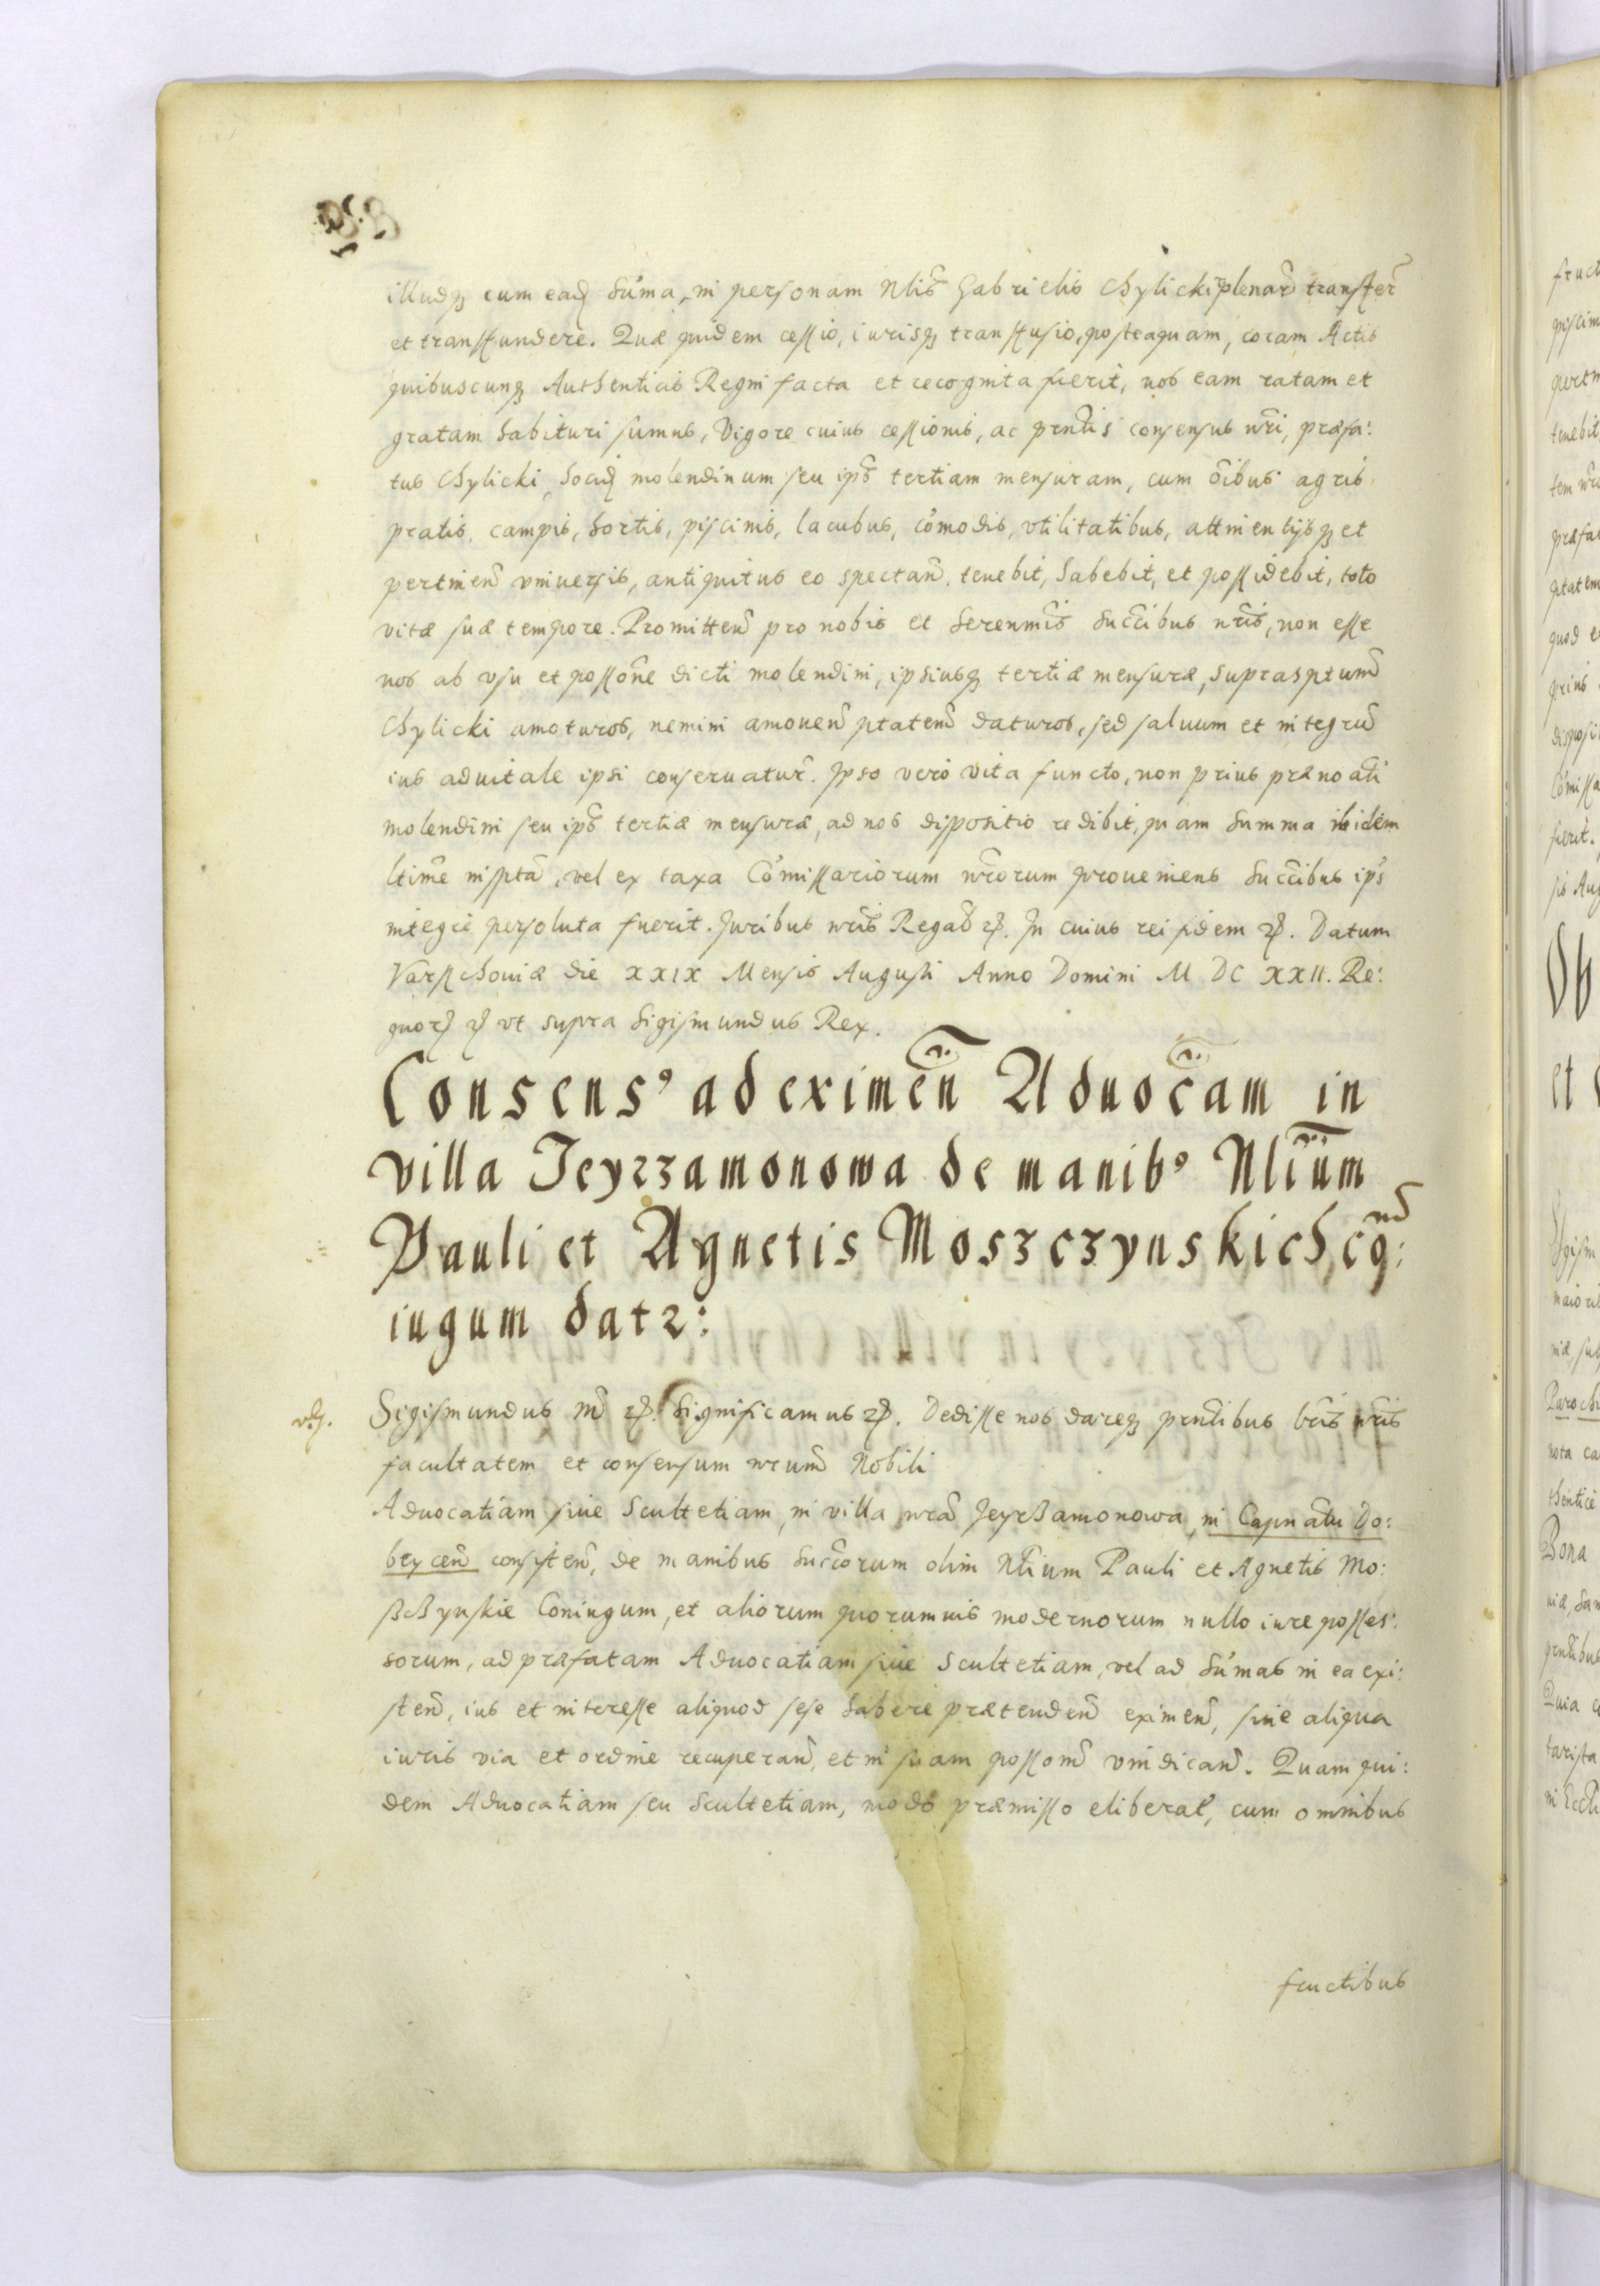 illudq₃ cum ead₃ Sum̃a, in personam Nlis̃ Gabrielis Chylicki plenar̃ transfer̃
et transfundere. Quæ quidem cessio, iurisq₃ transfusio, posteaquam, coram Actis
quibuscunq₃ Authenticis Regni facta et recognita fuerit, nos eam ratam et
gratam habituri sumus, Vigore cuius cessionis, ac prñtis consensus nr̃i, præfa:
tus Chylicki, hocid₃ molendinum seu ips̃ tertiam mensuram, cum õibus agris
pratis, campis, hortis, piscinis, lacubus, com̃odis, vtilitatibus, attinentijsq₃ et
pertinen̄ vniuersis, antiquitus eo spectan̄, tenebit, habebit, et possidebit, toto
vitæ suæ tempore. Promitten̄ pro nobis et Serenmis̃ Succ̃ibus nr̃is, non esse
nos ab vsu et posson̄e dicti molendini, ipsiusq₃ tertiæ mensuræ, suprasptum̄
Chylicki amoturos, nemini amouen̄ ptatem̄ daturos, sed saluum et integrum̄
ius aduitale ipsi conseruatur̃. Ipso vero vita functo, non prius prænoat̃i
molendini seu ips̃ tertiæ mensuræ, ad nos dispositio redibit, quam Summa ibidem
ltim̃e insptã, vel ex taxa Com̃issariorum nr̃orum proueniens Succ̃ibus ips̃
integre persoluta fuerit. Iuribus nr̃is Regal̃ ꝛc̃. In cuius rei fidem ꝛc̃. Datum
Varschouiæ die XXIX Mensis Augusti Anno Domini M DC XXII. Re:
gnor₃ ꝛc̃ vt supra Sigismundus Rex.
Consens⁹ ad eximen̄ Aduoc̃am in
villa Jeyrzamonowa de manib⁹ Nlium̄
Pauli et Agnetis Moszczynskich cõ:
iugum datꝛ:
Sigismundus III ꝛc̃. Significamus ꝛc̃. Dedisse nos dareq₃ prñtibus lr̃is nr̃is
facultatem et consensum nrum̄ Nobili
Aduocatiam siue Scultetiam, in villa nr̃a Jeyrßamonowa, in Capnãtu Do:
bcycen̄ consisten̄, de manibus Succ̃orum olim Nlium̄ Pauli et Agnetis Mo:
ßcßynskie Coniugum, et aliorum quorumuis modernorum nullo iure posses:
sorum, ad præfatam Aduocatiam siue Scultetiam, vel ad Sum̃as in ea exi:
sten̄, ius et interesse aliquod sese habere prætenden̄ eximen̄, siue aliqua
iuris via et ordine recuperan̄, et in suam posson̄e vindican̄. Quam qui:
dem Aduocatiam seu Scultetiam, modo præmisso eliberat̃, cum omnibus
fructibus